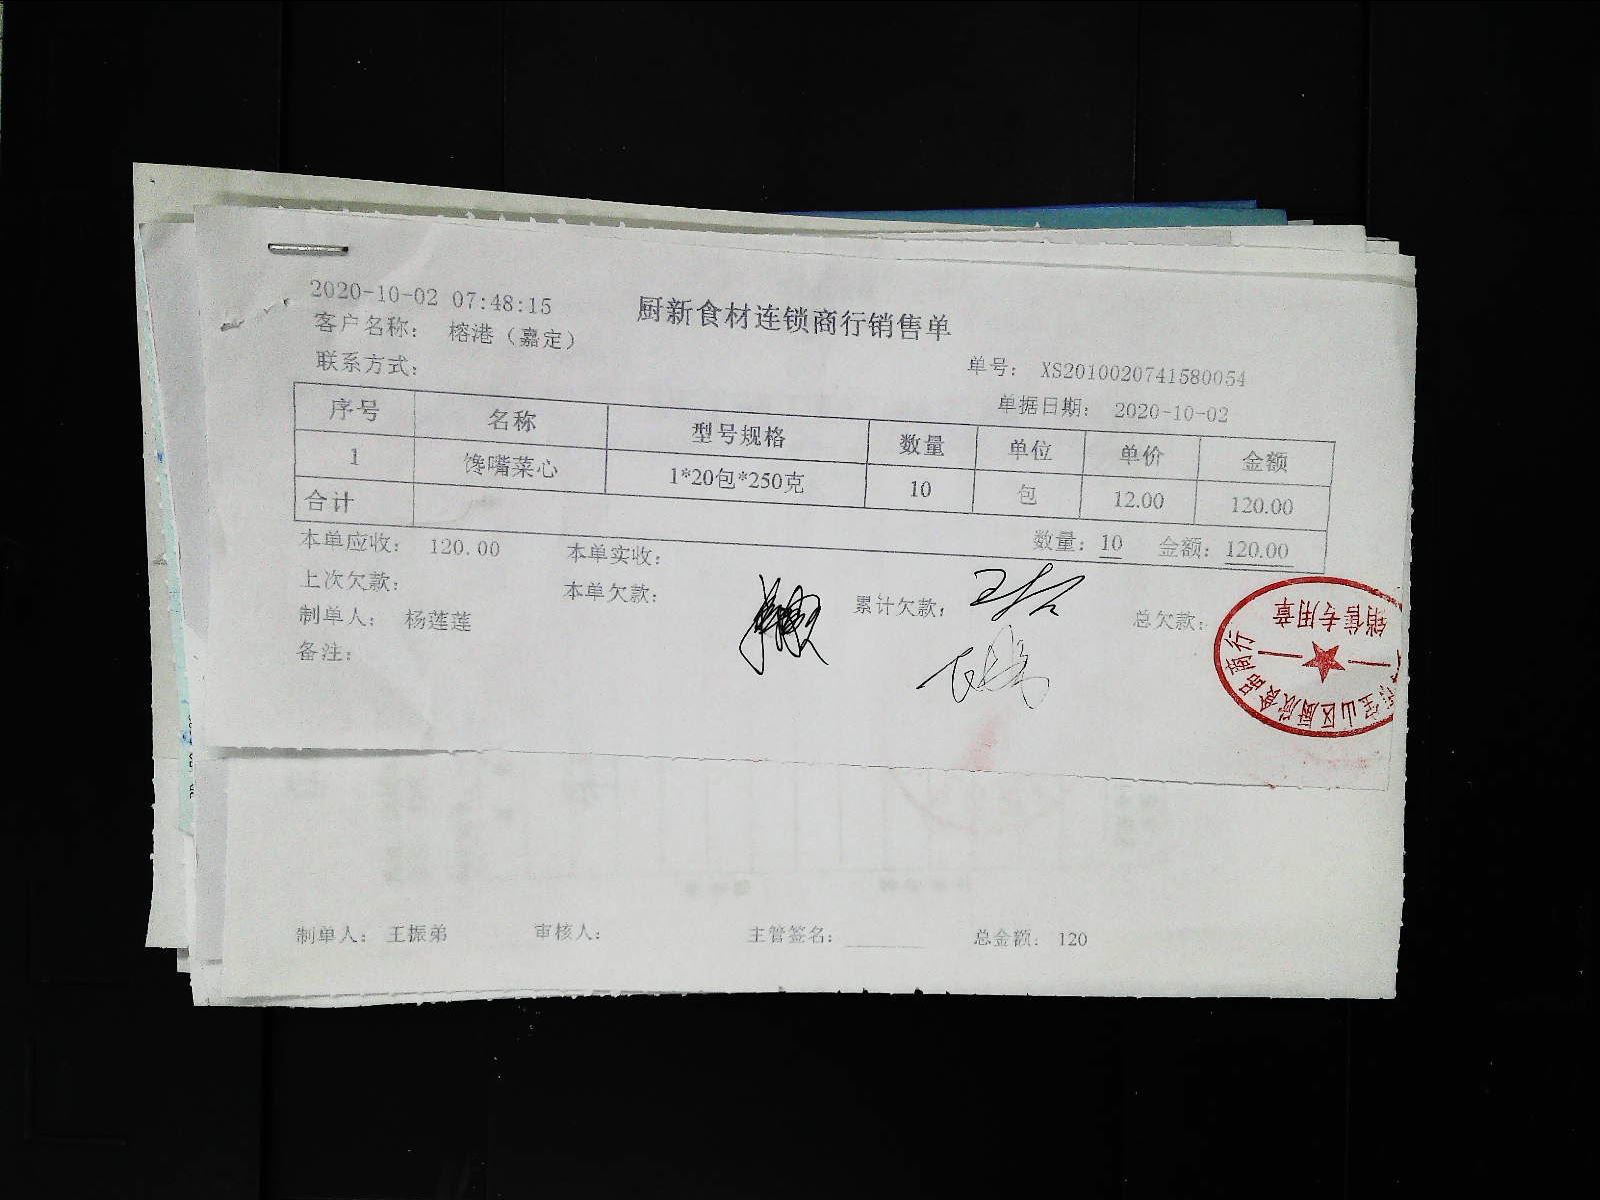 2020-10-02 07:48:15
厨新食材连锁商行销售单
客户名称： 榕港（嘉定）
联系方式：
单号： XS2010020741580054
单据日期： 2020-10-02
序号 名称 型号规格 数量 单位 单价 金额
1 馋嘴菜心 1*20包*250克 10 包 12.00 120.00
合计
数量：10 金额：120.00
本单应收： 120.00 本单实收：
上次欠款： 本单欠款： 累计欠款： 总欠款：
制单人： 杨莲莲
备注：
宝山区厨欣食品商行
销售专用章
制单人： 王振弟 审核人： 主管签名： 总金额： 120